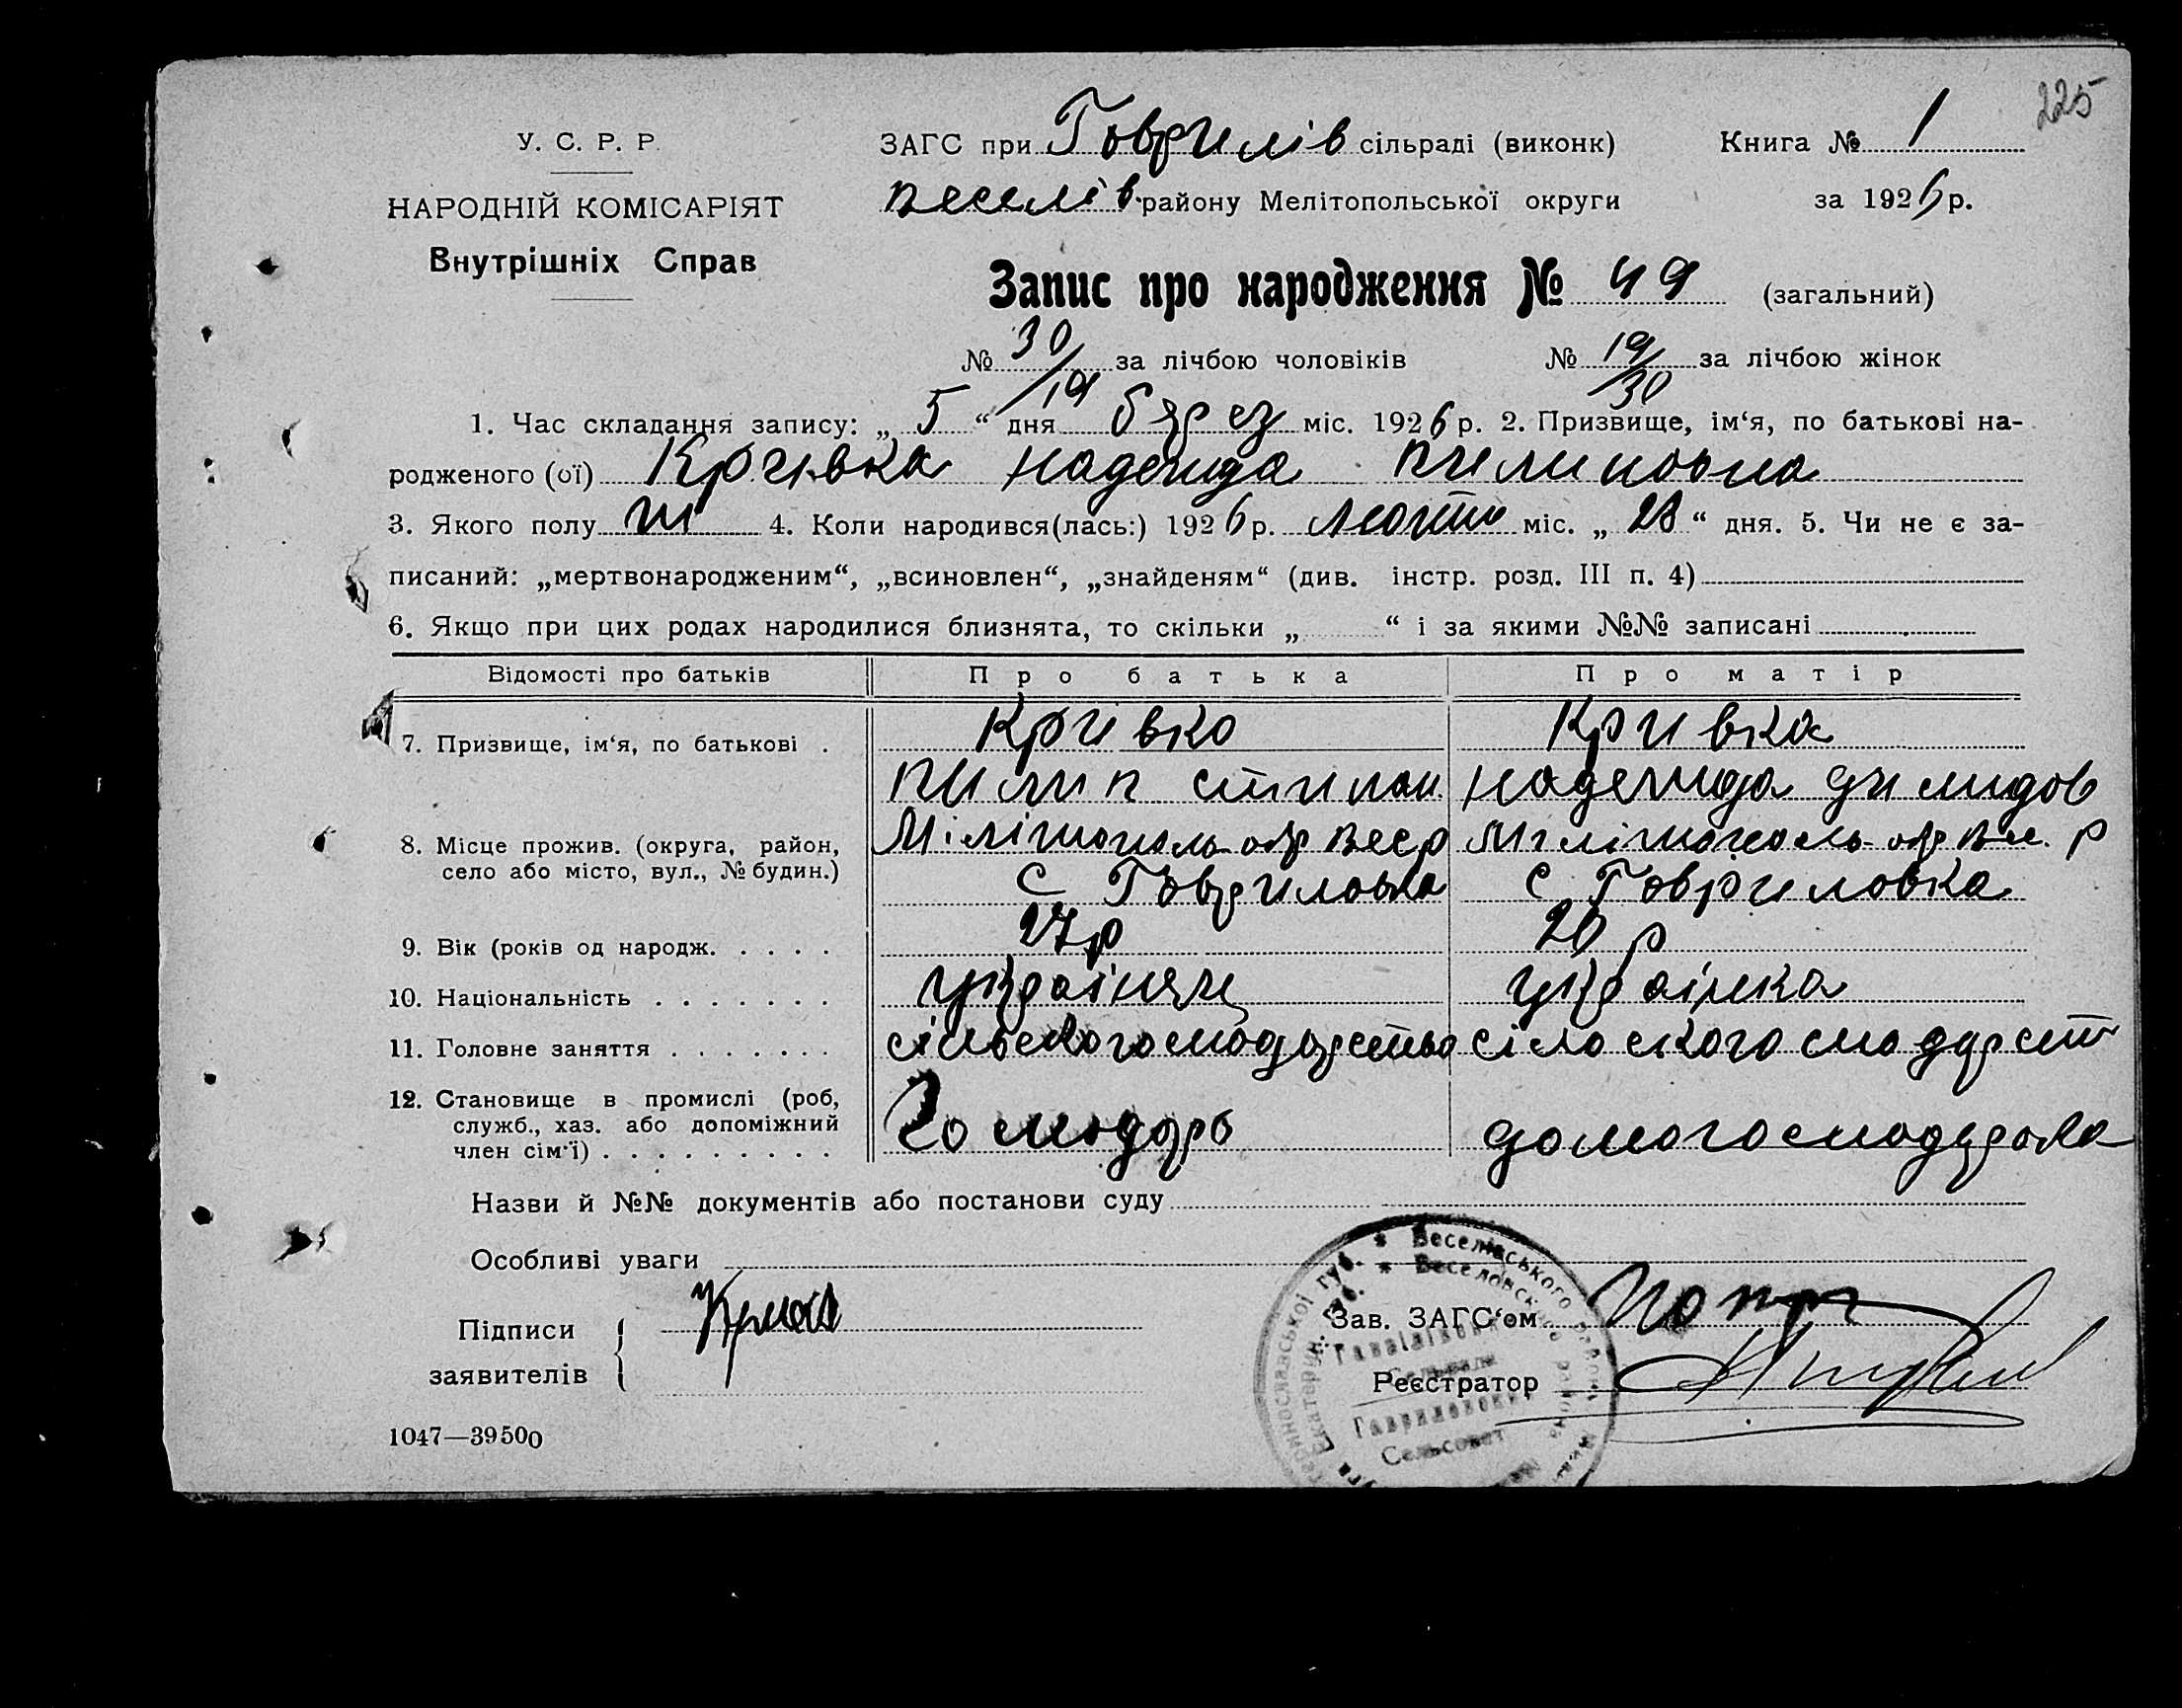 225
У. С. Р. Р.
НАРОДНІЙ КОМІСАРІЯТ
Внутрішніх Справ
ЗАГС при Говрилів сільраді (виконк)
Книга № 1
Веселів. району Мелітопольської округи
за 1926 р.
Запис про народження № 49 (загальний)
№ 30/19 за лічбою чоловіків № 19/30 за лічбою жінок
1. Час складання запису: „ 5 “ дня бярез міс. 1926 р. 2. Призвище, ім‘я, по батькові на-
родженого (ої) Кривка Надежда Пилиповна
3. Якого полу ж 4. Коли народився(лась:) 1926 р. міс. „ 28 “ дня. 5. Чи не є за-
писаний: „мертвонародженим“, „всиновлен“, „знайденям“ (див. інстр. розд. III п. 4)
6. Якщо при цих родах народилися близнята, то скільки „ “ і за якими №№ записані
Відомості про батьків Про батька Про матір
7. Призвище, ім‘я, по батькові . Кривко Кривка
Пилип Стипан. Надежда
8. Місце прожив. (округа, район, Мілітополь окр Вес р Мілітополь окр Вес. р
село або місто, вул., № будин.) с Говриловка с Говриловка
9. Вік (років од народж. . . . . 27 р 20 р
10. Національність . . . . . . . українец українка
11. Головне заняття . . . . . . . сільскогосподарство сілоскогосподарст
12. Становище в промислі (роб,
служб., хаз. або допоміжний Господарь домогосподарка
член сім‘ї) . . . . . . . . .
Назви й №№ документів або постанови суду
Особливі уваги
Підписи
заявителів
Зав. ЗАГС‘ом
Реєстратор
Веселівського
Веселовского района
Гавриловский
Сельсовет
1047—39500